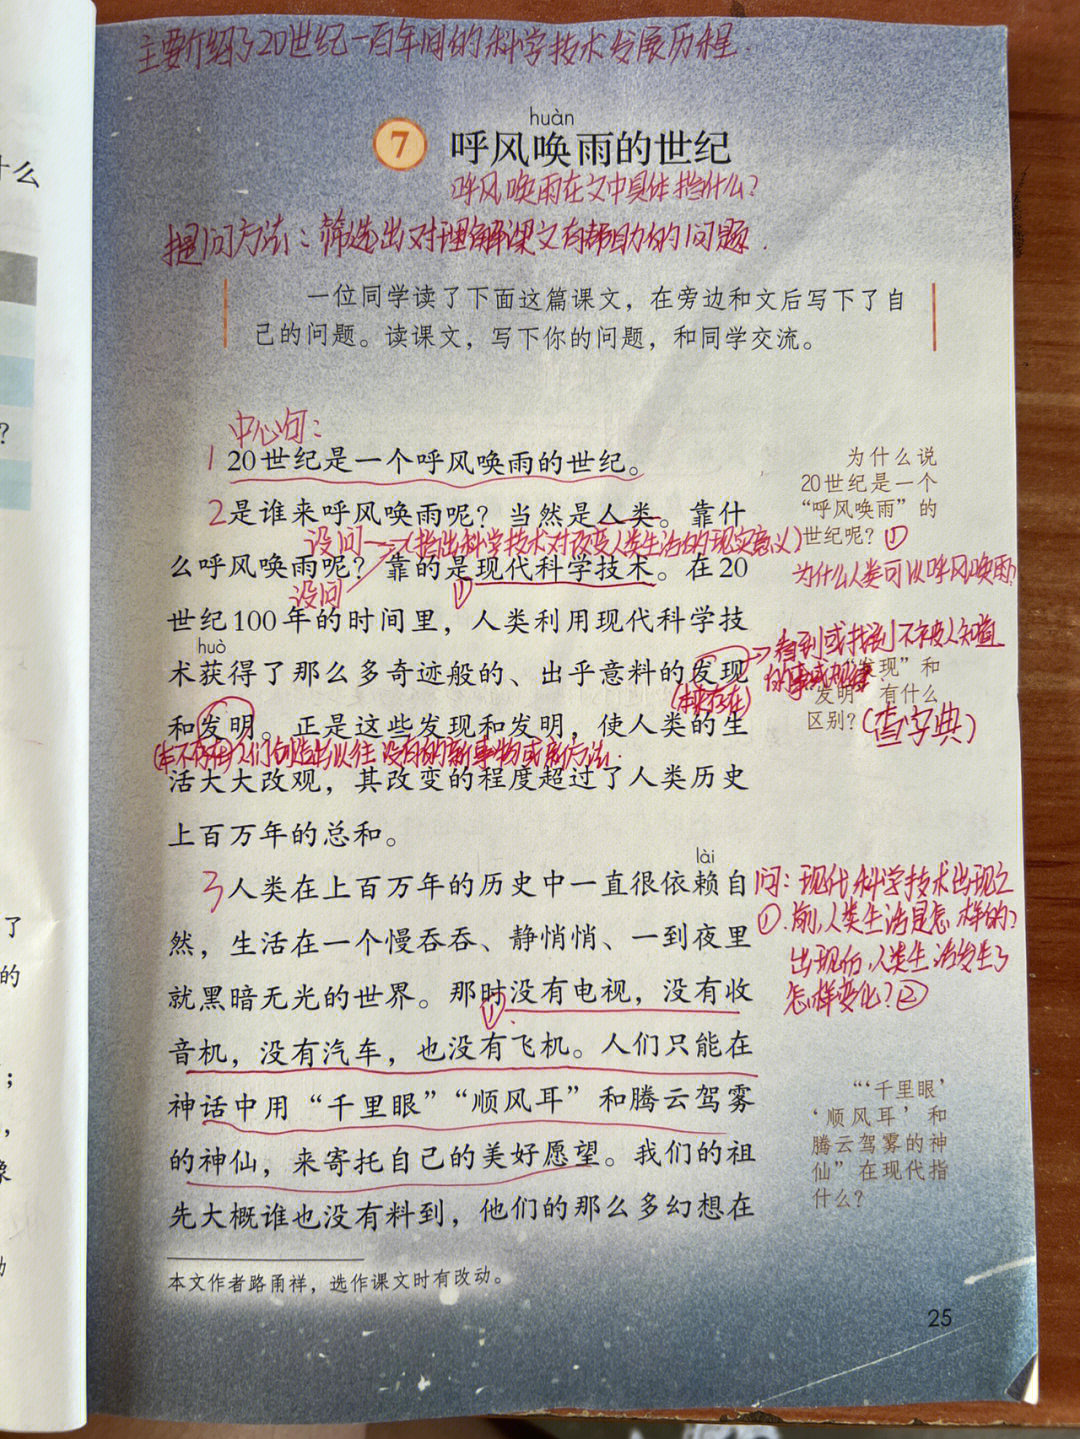 主要介绍了20世纪一百年间的科学技术发展历程.
huàn
7 呼风唤雨的世纪
呼风唤雨在文中具体指什么?
提问方法:筛选出对理解课文有帮助的问题.
一位同学读了下面这篇课文，在旁边和文后写下了自
己的问题。读课文，写下你的问题，和同学交流。
中心句:
1 20世纪是一个呼风唤雨的世纪。
2是谁来呼风唤雨呢？当然是人类。靠什
设问→(指出科学技术对改变人类生活的现实意义)
么呼风唤雨呢？靠的是现代科学技术。在20
设问 ①
世纪100年的时间里，人类利用现代科学技
huò
术获得了那么多奇迹般的、出乎意料的发现
(本来存在)
和发明。正是这些发现和发明，使人类的生
(本不存在)人们创造出以往没有的新事物或新方法.
活大大改观，其改变的程度超过了人类历史
上百万年的总和。
lài
3人类在上百万年的历史中一直很依赖自
然，生活在一个慢吞吞、静悄悄、一到夜里
就黑暗无光的世界。那时没有电视，没有收
①
音机，没有汽车，也没有飞机。人们只能在
神话中用“千里眼”“顺风耳”和腾云驾雾
的神仙，来寄托自己的美好愿望。我们的祖
先大概谁也没有料到，他们的那么多幻想在
为什么说
20世纪是一个
“呼风唤雨”的
世纪呢？①
为什么人类可以呼风唤雨?
→看到或找到不被人知道
的事或规律
发现”和
发明”有什么
区别？(查字典)
问:现代科学技术出现之
①前,人类生活是怎样的?
出现后,人类生活发生了
怎样变化?②
“‘千里眼’
‘顺风耳’和
腾云驾雾的神
仙”在现代指
什么？
本文作者路甬祥，选作课文时有改动。
25
什么
?
了
的
；
，
象